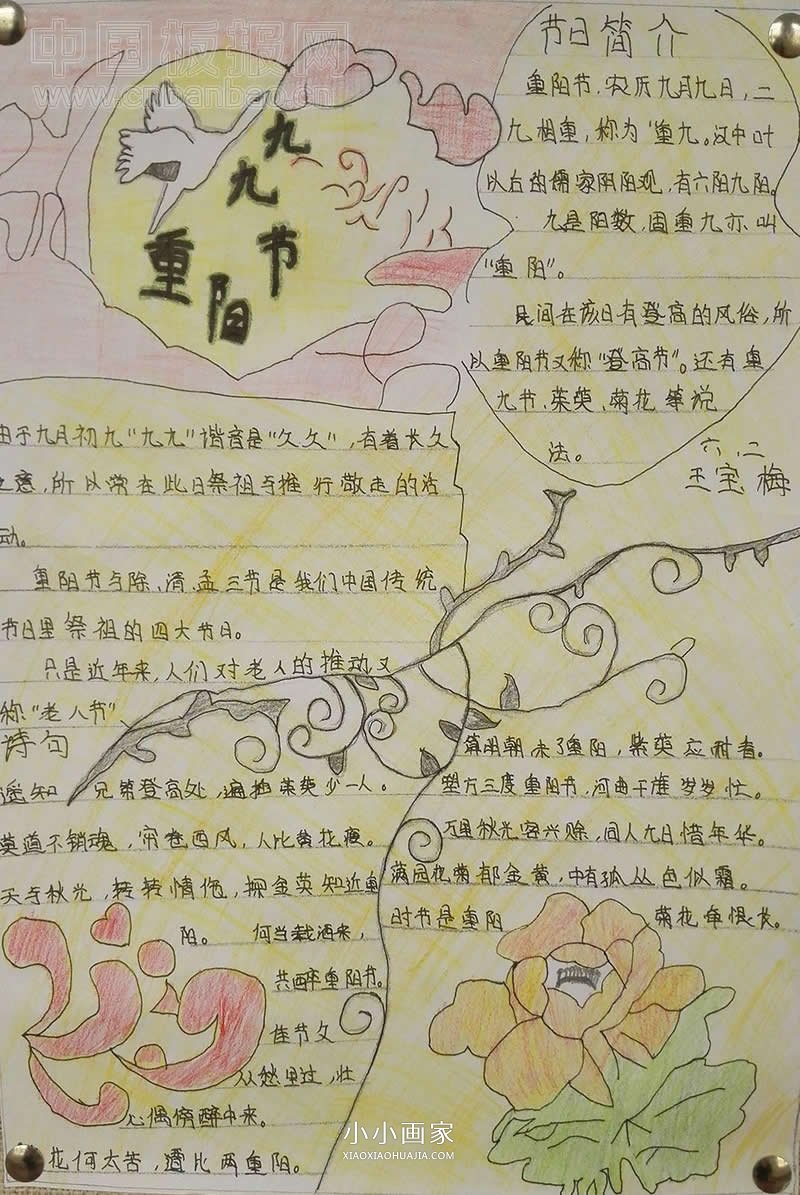 中国板报网
www.cnbanbao.cn
九九
重阳节
节日简介
重阳节,农历九月九日,二
九相重,称为"重九。汉中叶
以后的儒家阴阳观,有六阴九阳。
九是阳数,固重九亦叫
"重阳"。
民间在该日有登高的风俗,所
以重阳节又称"登高节"。还有重
九节、茱萸、菊花等说
法。
六、二
王宝梅
由于九月初九"九九"谐音是"久久",有着长久
之意,所以常在此日祭祖与推行敬老的活
动。
重阳节与除、清、孟三节是我们中国传统
节日里祭祖的四大节日。
只是近年来,人们对老人的推动又
称"老人节"、
诗句
遥知 兄弟登高处,遍插茱萸少一人。
莫道不销魂,帘卷西风,人比黄花瘦。
天与秋光,转转情伤,探金英知近重
阳。 何当载酒来,
共醉重阳节。
佳节久
从愁里过,壮
心偶傍醉中来。
花何太苦,遭比两重阳。
明朝未了重阳,紫萸应耐看。
塑方三度重阳节,河曲干旌岁岁忙。
万里秋光客兴赊,同人九日惜年华。
满园花菊郁金黄,中有孤丛色似霜。
时节是重阳 菊花牵恨长。
小小画家
XIAOXIAOHUAJIA.COM